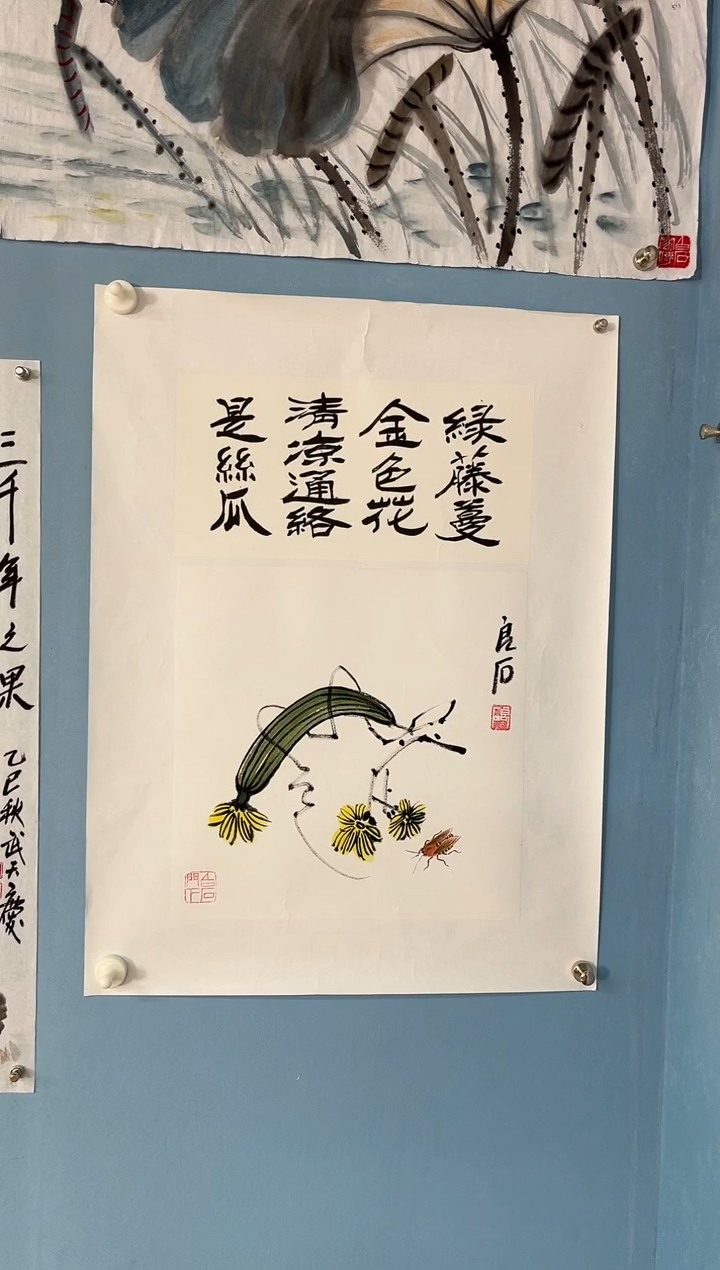 緑藤蔓
金色花
清凉通絡
是絲瓜
良石
三千年之果
乙巳秋武大慶